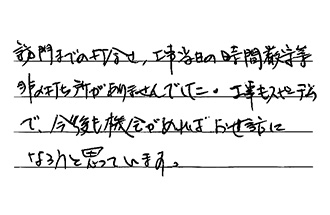 訪問までの打合せ、工事当日の時間厳守等
非の打ち所がありませんでした。工事もスムーズ
で、今後も機会があればお世話に
なろうと思っています。